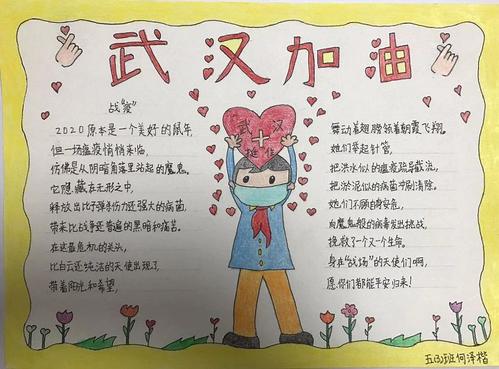 武汉加油
战"疫"
2020原本是一个美好的鼠年,
但一场瘟疫悄悄来临,
仿佛是从阴暗角落里站起的魔鬼。
它隐藏在无形之中,
释放出比子弹杀伤力还强大的病菌,
带来比战争还普遍的黑暗和痛苦。
在这最危机的关头,
比白云还纯洁的天使出现了,
带着阳光和希望,
武 汉
舞动着翅膀领着朝霞飞翔。
她们拿起针管,
把洪水似的瘟疫疏导截流,
把淤泥似的病菌冲刷清除。
她们不顾自身安危,
向魔鬼般的病毒发出挑战,
挽救了一个又一个生命。
身在"战场"的天使们啊,
愿你们都能平安归来!
五(3)班何泽楷